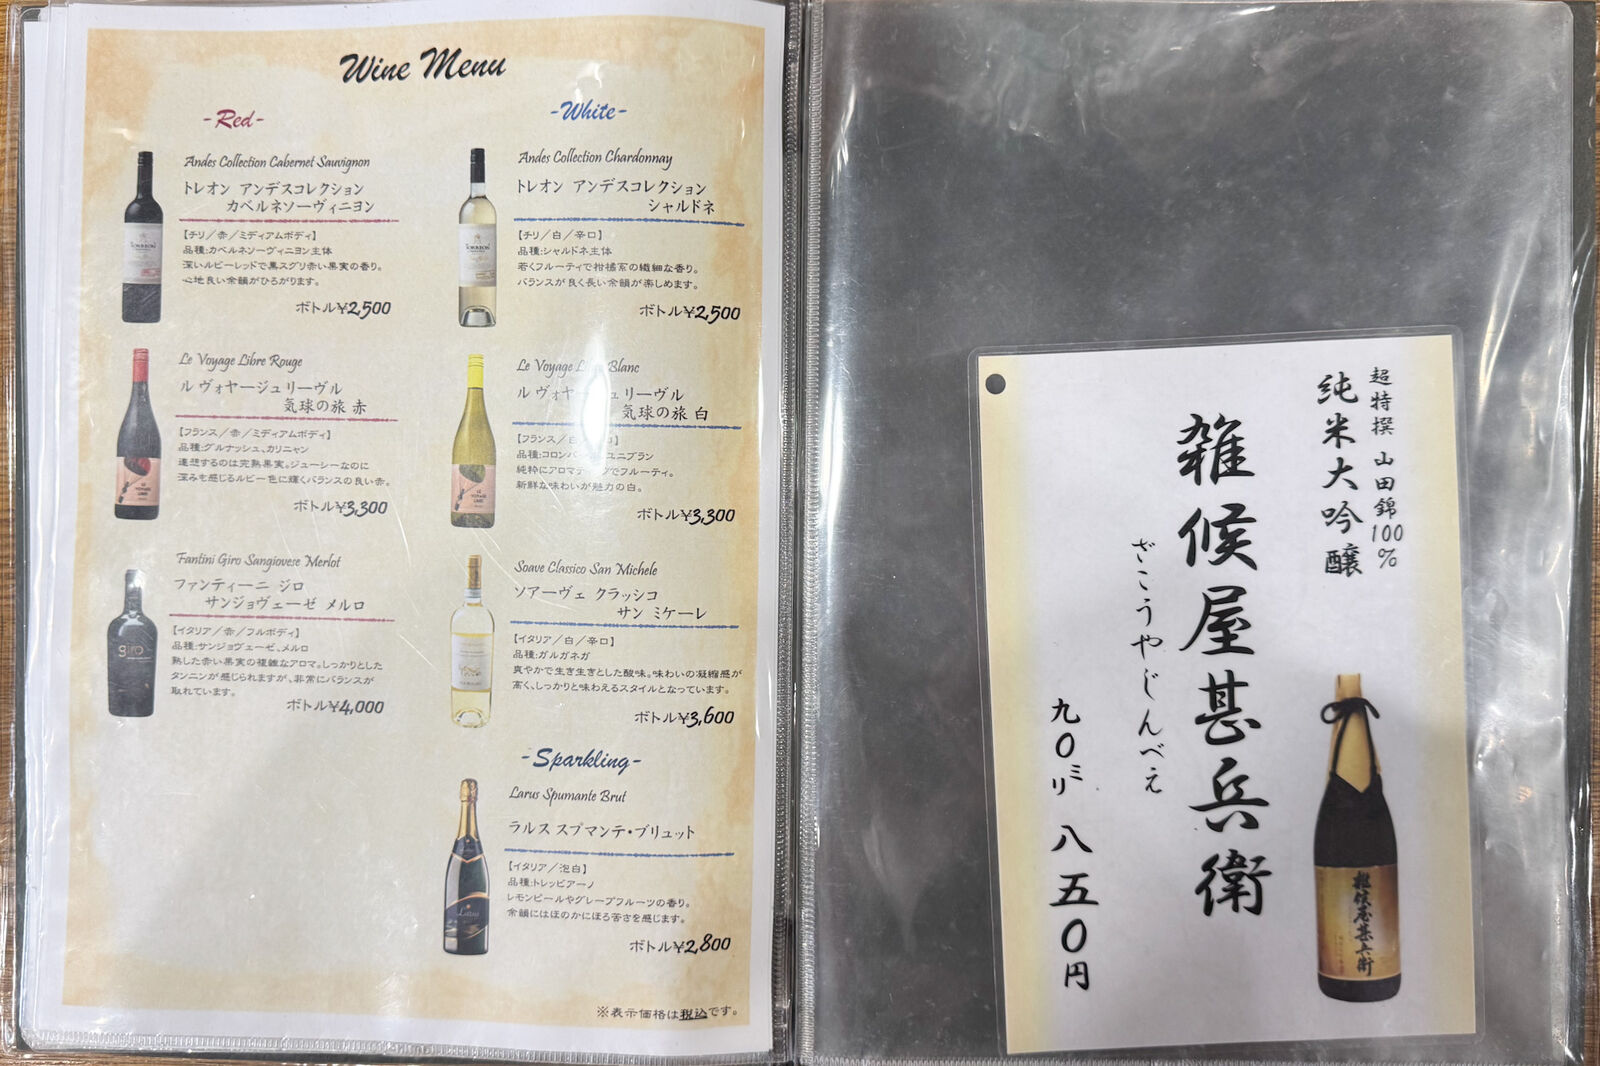 Wine Menu
-Red-
Andes Collection Cabernet Sauvignon
トレオン アンデスコレクション
カベルネソーヴィニヨン
【チリ／赤／ミディアムボディ】
品種:カベルネソーヴィニヨン主体
深いルビーレッドで黒スグリ赤い果実の香り。
心地良い余韻がひろがります。
ボトル¥2,500
Le Voyage Libre Rouge
ル ヴォヤージュリーヴル
気球の旅 赤
【フランス／赤／ミディアムボディ】
品種:グルナッシュ、カリニャン
連想するのは完熟果実。ジューシーなのに
深みも感じるルビー色に輝くバランスの良い赤。
ボトル¥3,300
Fantini Giro Sangiovese Merlot
ファンティーニ ジロ
サンジョヴェーゼ メルロ
【イタリア／赤／フルボディ】
品種:サンジョヴェーゼ、メルロ
熟した赤い果実の複雑なアロマ。しっかりとした
タンニンが感じられますが、非常にバランスが
取れています。
ボトル¥4,000
giro
-White-
Andes Collection Chardonnay
トレオン アンデスコレクション
シャルドネ
【チリ／白／辛口】
品種:シャルドネ主体
若くフルーティで柑橘系の繊細な香り。
バランスが良く長い余韻が楽しめます。
ボトル¥2,500
Le Voyage Blanc
ル ヴォヤージュリーヴル
気球の旅 白
【フランス／白／口】
品種:コロンバール、ユニブラン
純粋にアロマティックでフルーティ。
新鮮な味わいが魅力の白。
ボトル¥3,300
Soave Classico San Michele
ソアーヴェ クラッシコ
サン ミケーレ
【イタリア／白／辛口】
品種:ガルガネガ
爽やかで生き生きとした酸味。味わいの凝縮感が
高く、しっかりと味わえるスタイルとなっています。
ボトル¥3,600
-Sparkling-
Larus Spumante Brut
ラルス スプマンテ・ブリュット
【イタリア／泡白】
品種:トレッビアーノ
レモンピールやグレープフルーツの香り。
余韻にはほのかにほろ苦さを感じます。
ボトル¥2,800
Larus
※表示価格は税込です。
超特撰 山田錦100%
純米大吟醸
雑候屋甚兵衛
ざこうやじんべえ
九〇ミリ 八五〇円
雑候屋甚兵衛